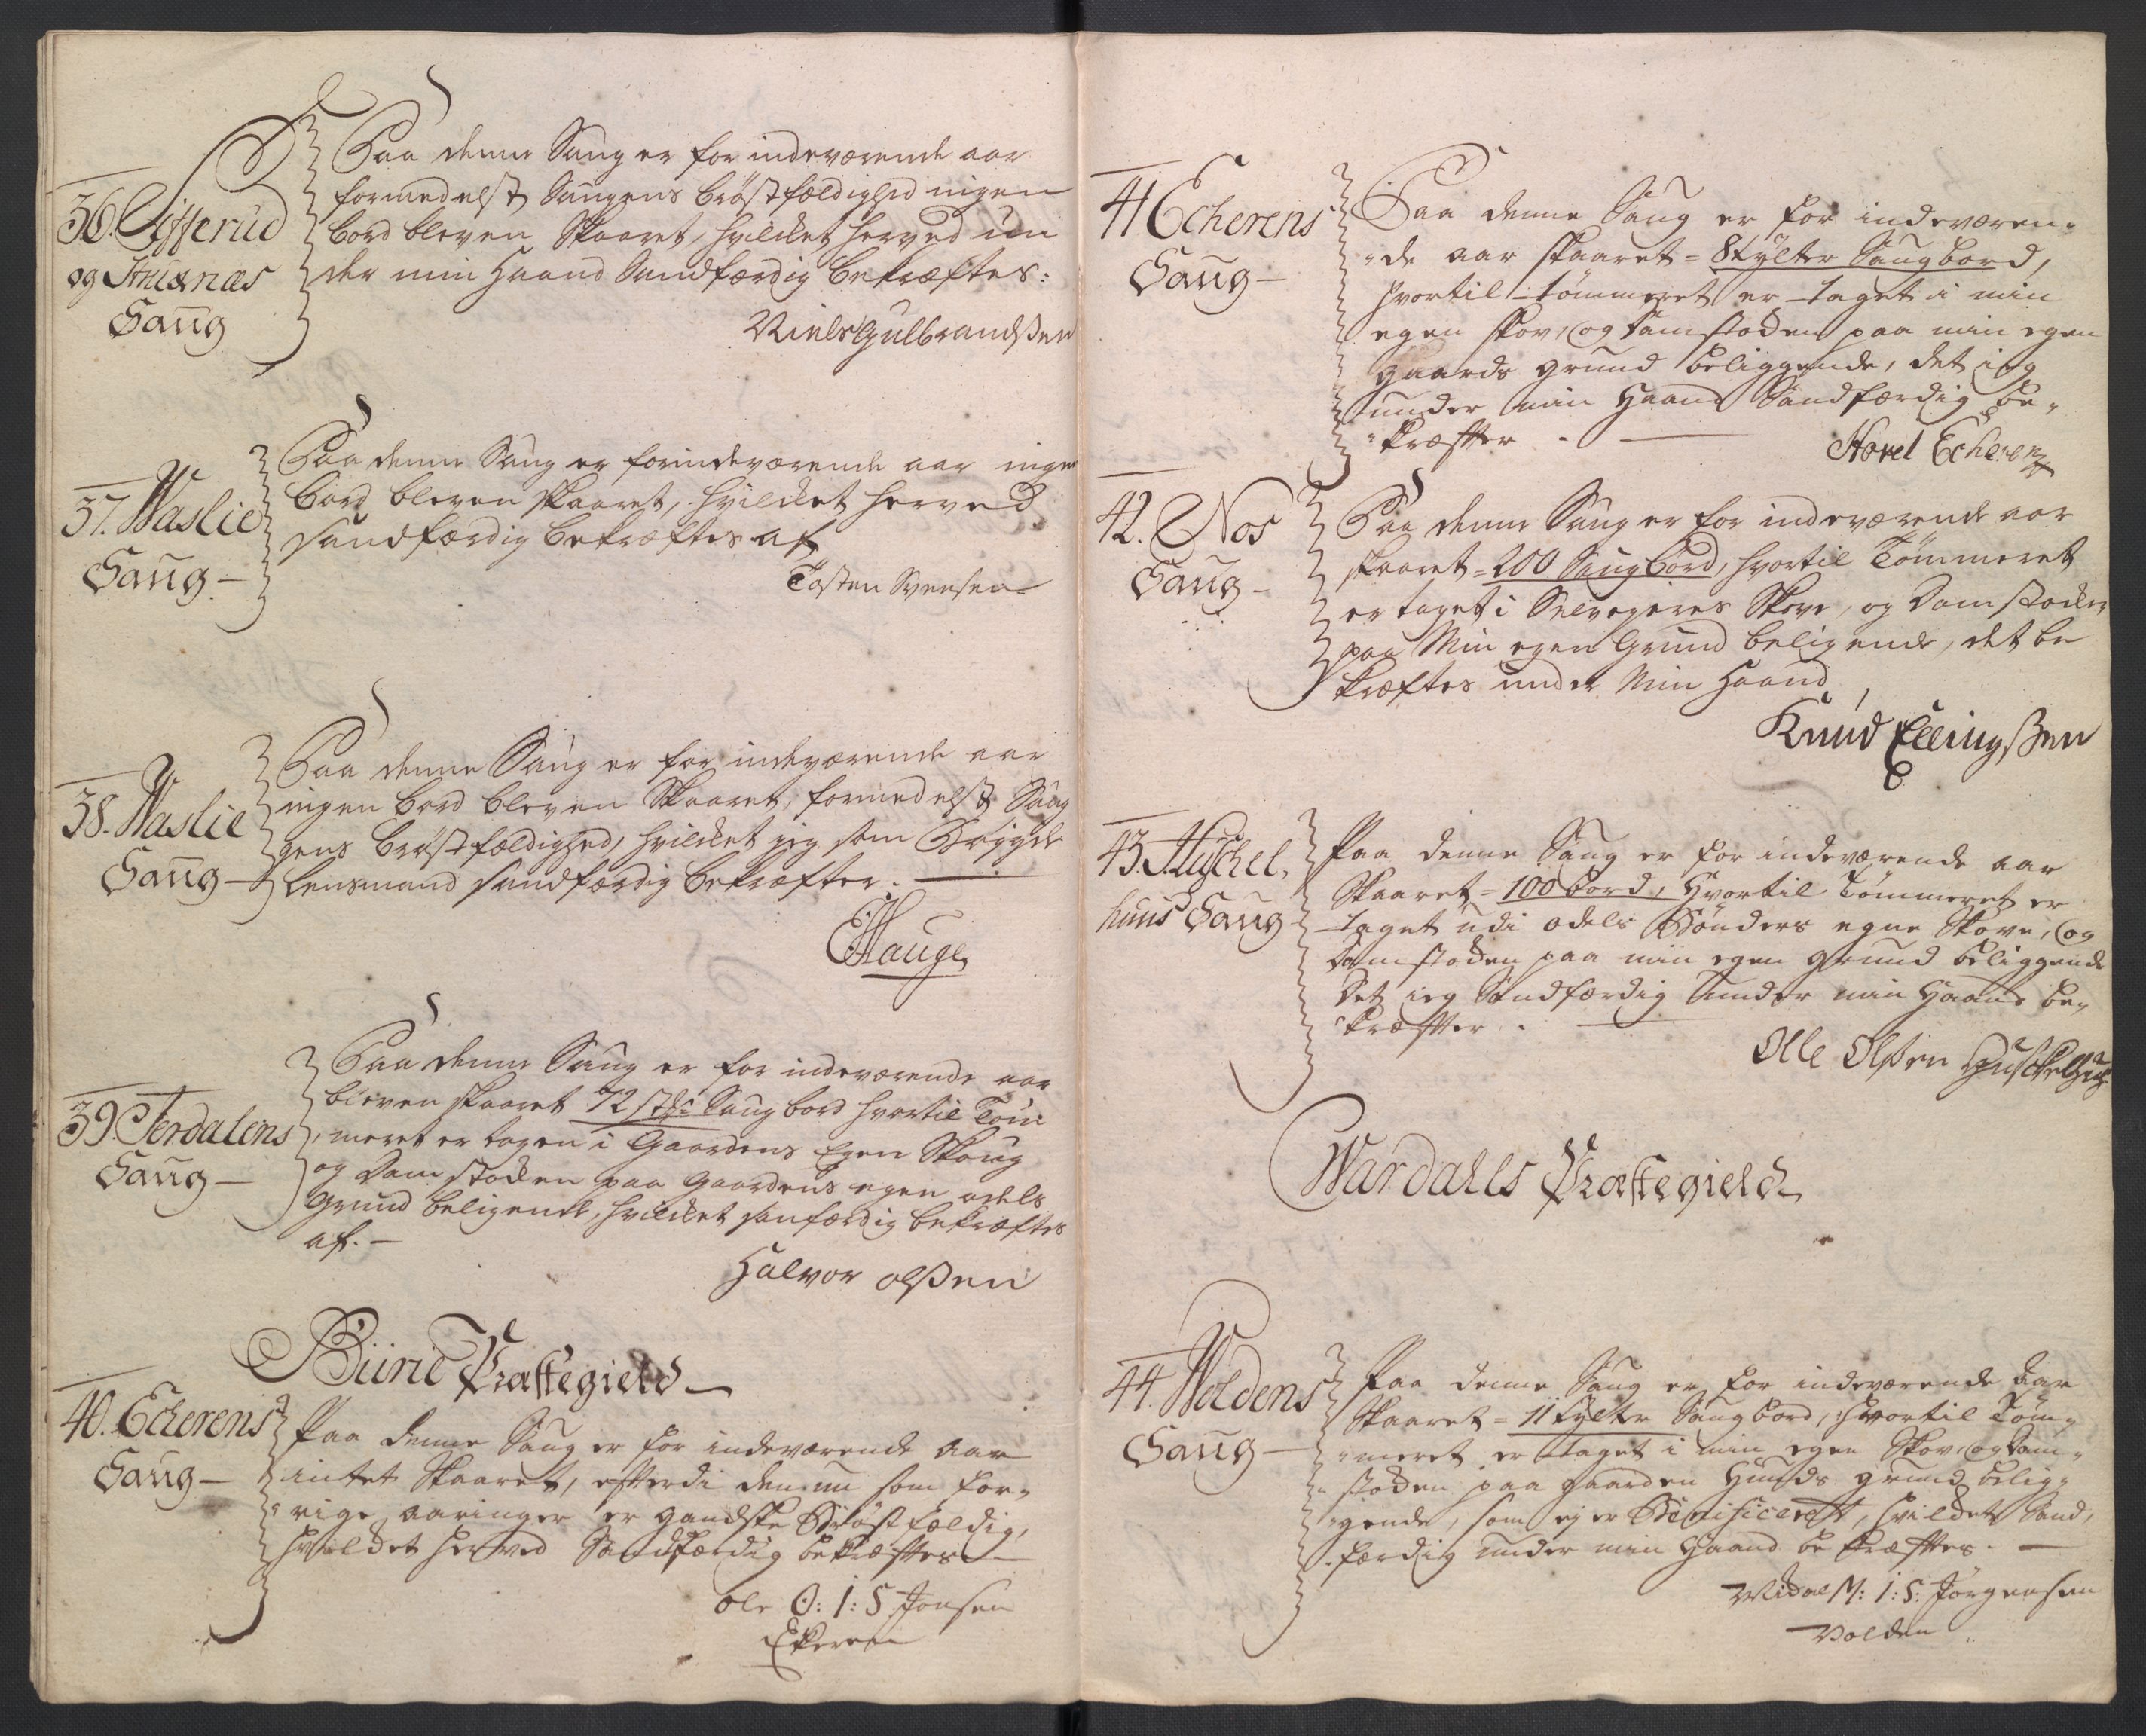 36. Efferud
og Struxnæs
Saug
Paa denne Saug er for indeværende aar
formedelst Saugens brøstfældighed ingen
bord bleven Skaaret, hvilket herved un
der min Haand Sandfærdig bekræftes:
Niels Gulbrandsen
37. Waslie
Saug –
Paa denne Saug er for indeværende aar ingen
bord bleven skaaret, hvilket herved
sandfærdig bekræftes af
Tosten Svensen
38. Waslie
Saug –
Paa denne Saug er for indeværende aar
ingen bord bleven Skaaret, formedelst Sau
gens brøstfældighed, hvilket jeg som Bøygde
lensmand sandfærdig bekræfter. –
EHauge
39. Jerdalens
Saug –
Paa denne Saug er for indeværende aar
bleven skaaret 72 stk: Saugbord hvortil Tøm
meret er tagen i Gaardens Egen Skoug
og Damstoken paa Gaardens egen odels
Grund beligende, hvilket sanfærdig bekræftes
af. –
Halvor olsen
Biirie Præstegield –
40. Echerens
Saug –
Paa denne Saug er for indeværende aar
intet Skaaret, efterdi den nu som for,,
,,rige aaringer er gandske Brøstfældig,
hvilket herved Sandfærdig bekræfftes –
ole O: I: S Jonsen
Ekeren
41 Echerens
Saug –
Paa denne Saug er for indeværen,,
,,de aar skaaret = 8 tylter Saugbord,
hvortil tømmeret er taget i min
egen skov, og Damstoden paa min egen
gaards grund beliggende, det ieg
under min Haand Sandfærdig be,,
,,kræffter. –
Hovel Echeren
42. Nos
Saug –
Paa denne Saug er for indeværende aar
skaaret = 200 Saugbord, hvortil Tømmeret
er taget i Selvegeres Skove, og Damstoken
paa Min egen Grund beligende, det be
kræftes under Min Haand
Knud Ellingsen
43. Huschel,
huus Saug
Paa denne Saug er for indeværende aar
Skaaret = 100 bord, Hvortil Tømmeret er
taget udi odels Bønders egne Skove, og
Damstoden paa min egen grund beliggende
Det ieg Sandfærdig under min Haand be,,
,,kræffter. –
Olle Olsen Huskelhuus
Wardahls Præstegield –
44. Woldens
Saug –
Paa denne Saug er for indeværende aar
Skaaret = 11 tylter Saugbord, hvortil Tøm,,
,,meret er taget i min egen Skov og Dam,,
,,stoden paa gaarden Hunds grund belig,,
,,gende, som ej er Benificeret, hvilket Sand,
,,færdig under min Haand bekræfftes. –
Vidal M: I: S: Jørgensen
Volden